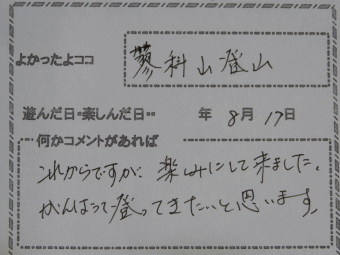 よかったよココ
蓼科山登山
遊んだ日・楽しんだ日・・ 年 8月 17日
何かコメントがあれば
これからですが、楽しみにして来ました。
がんばって登ってきたいと思います。